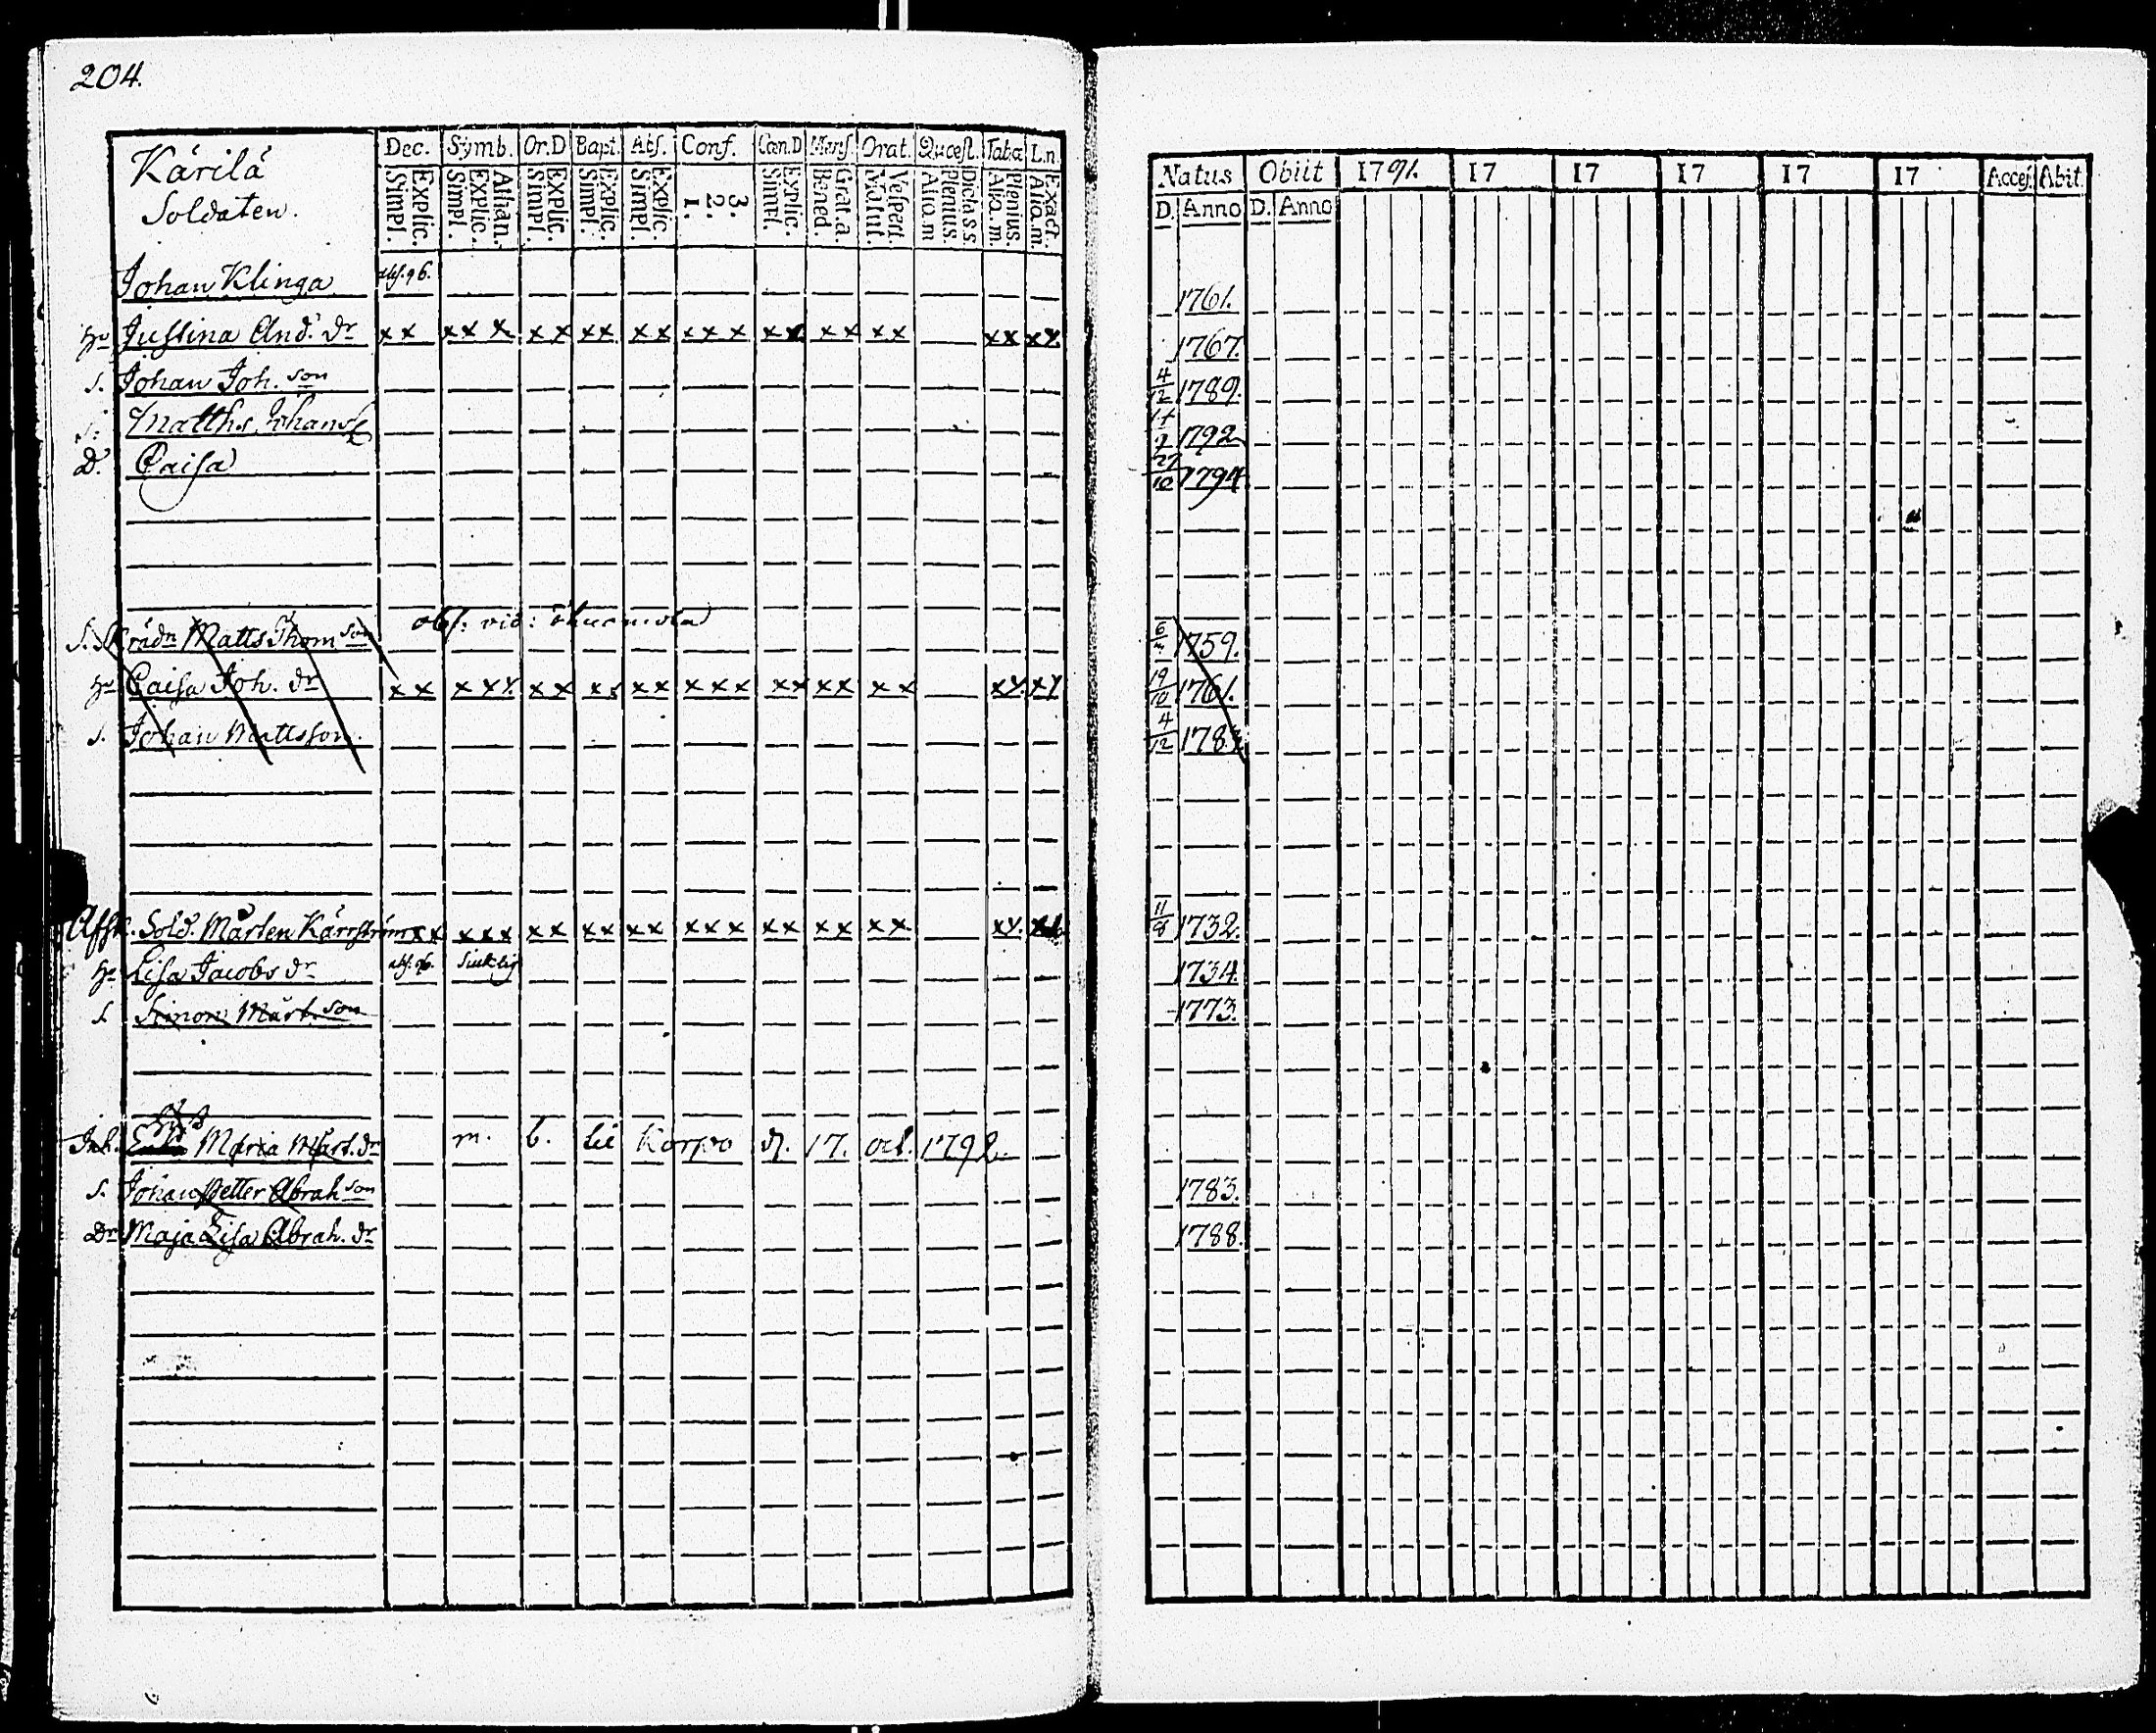 204.
Kärilä
Soldaten.
Dec. Symb. Or.D Bapt. Abs. Conf. Cœn.D Mens. Orat. Quæst. Tabæ L.n.
Explic. Simpl. Athan. Explic. Simpl. Explic. Simpl. Explic. Simpl. Explic. Simpl. 3. 2. 1. Explic. Simpl. Grat.a. Bened. Vespert. Matut. Dicta s s Plenius. Aliq.m Plenius. Aliq.m. Exact. Aliq.m.
Natus Obiit 1791. 17 17 17 17 17 Acces. Abit.
D. Anno D. Anno
Johan Klinga abs. 96. 1761.
Hu Justina And. dr x x x x x x x x x x x x x x x x x x x x x x x x 1767.
S. Johan Joh. son 4/12 1789.
S. Matths Johans 1792
D. Caisa 27/10 1794
S. Skrädn Matts Thom son 1759.
Hu Caisa Joh. dr x x x x x x x x x x x x x x x x x x x x x x x x 19/10 1761.
S. Johan Mattsson 4/12 178
Affsk. Sold. Mårten Kärrström x x x x x x x x x x x x x x x x x x x x x x x x 11/8 1732.
Hu Lisa Jacobs dr abs. 96. Siuklig 1734.
S. Simon Mårt. son 1773.
Inh. Maria Mårt. dr m. b. til Korpo d. 17. oct. 1792.
S. Johan Petter Abrah son 1783.
Dr Maja Lisa Abrah. dr 1788.